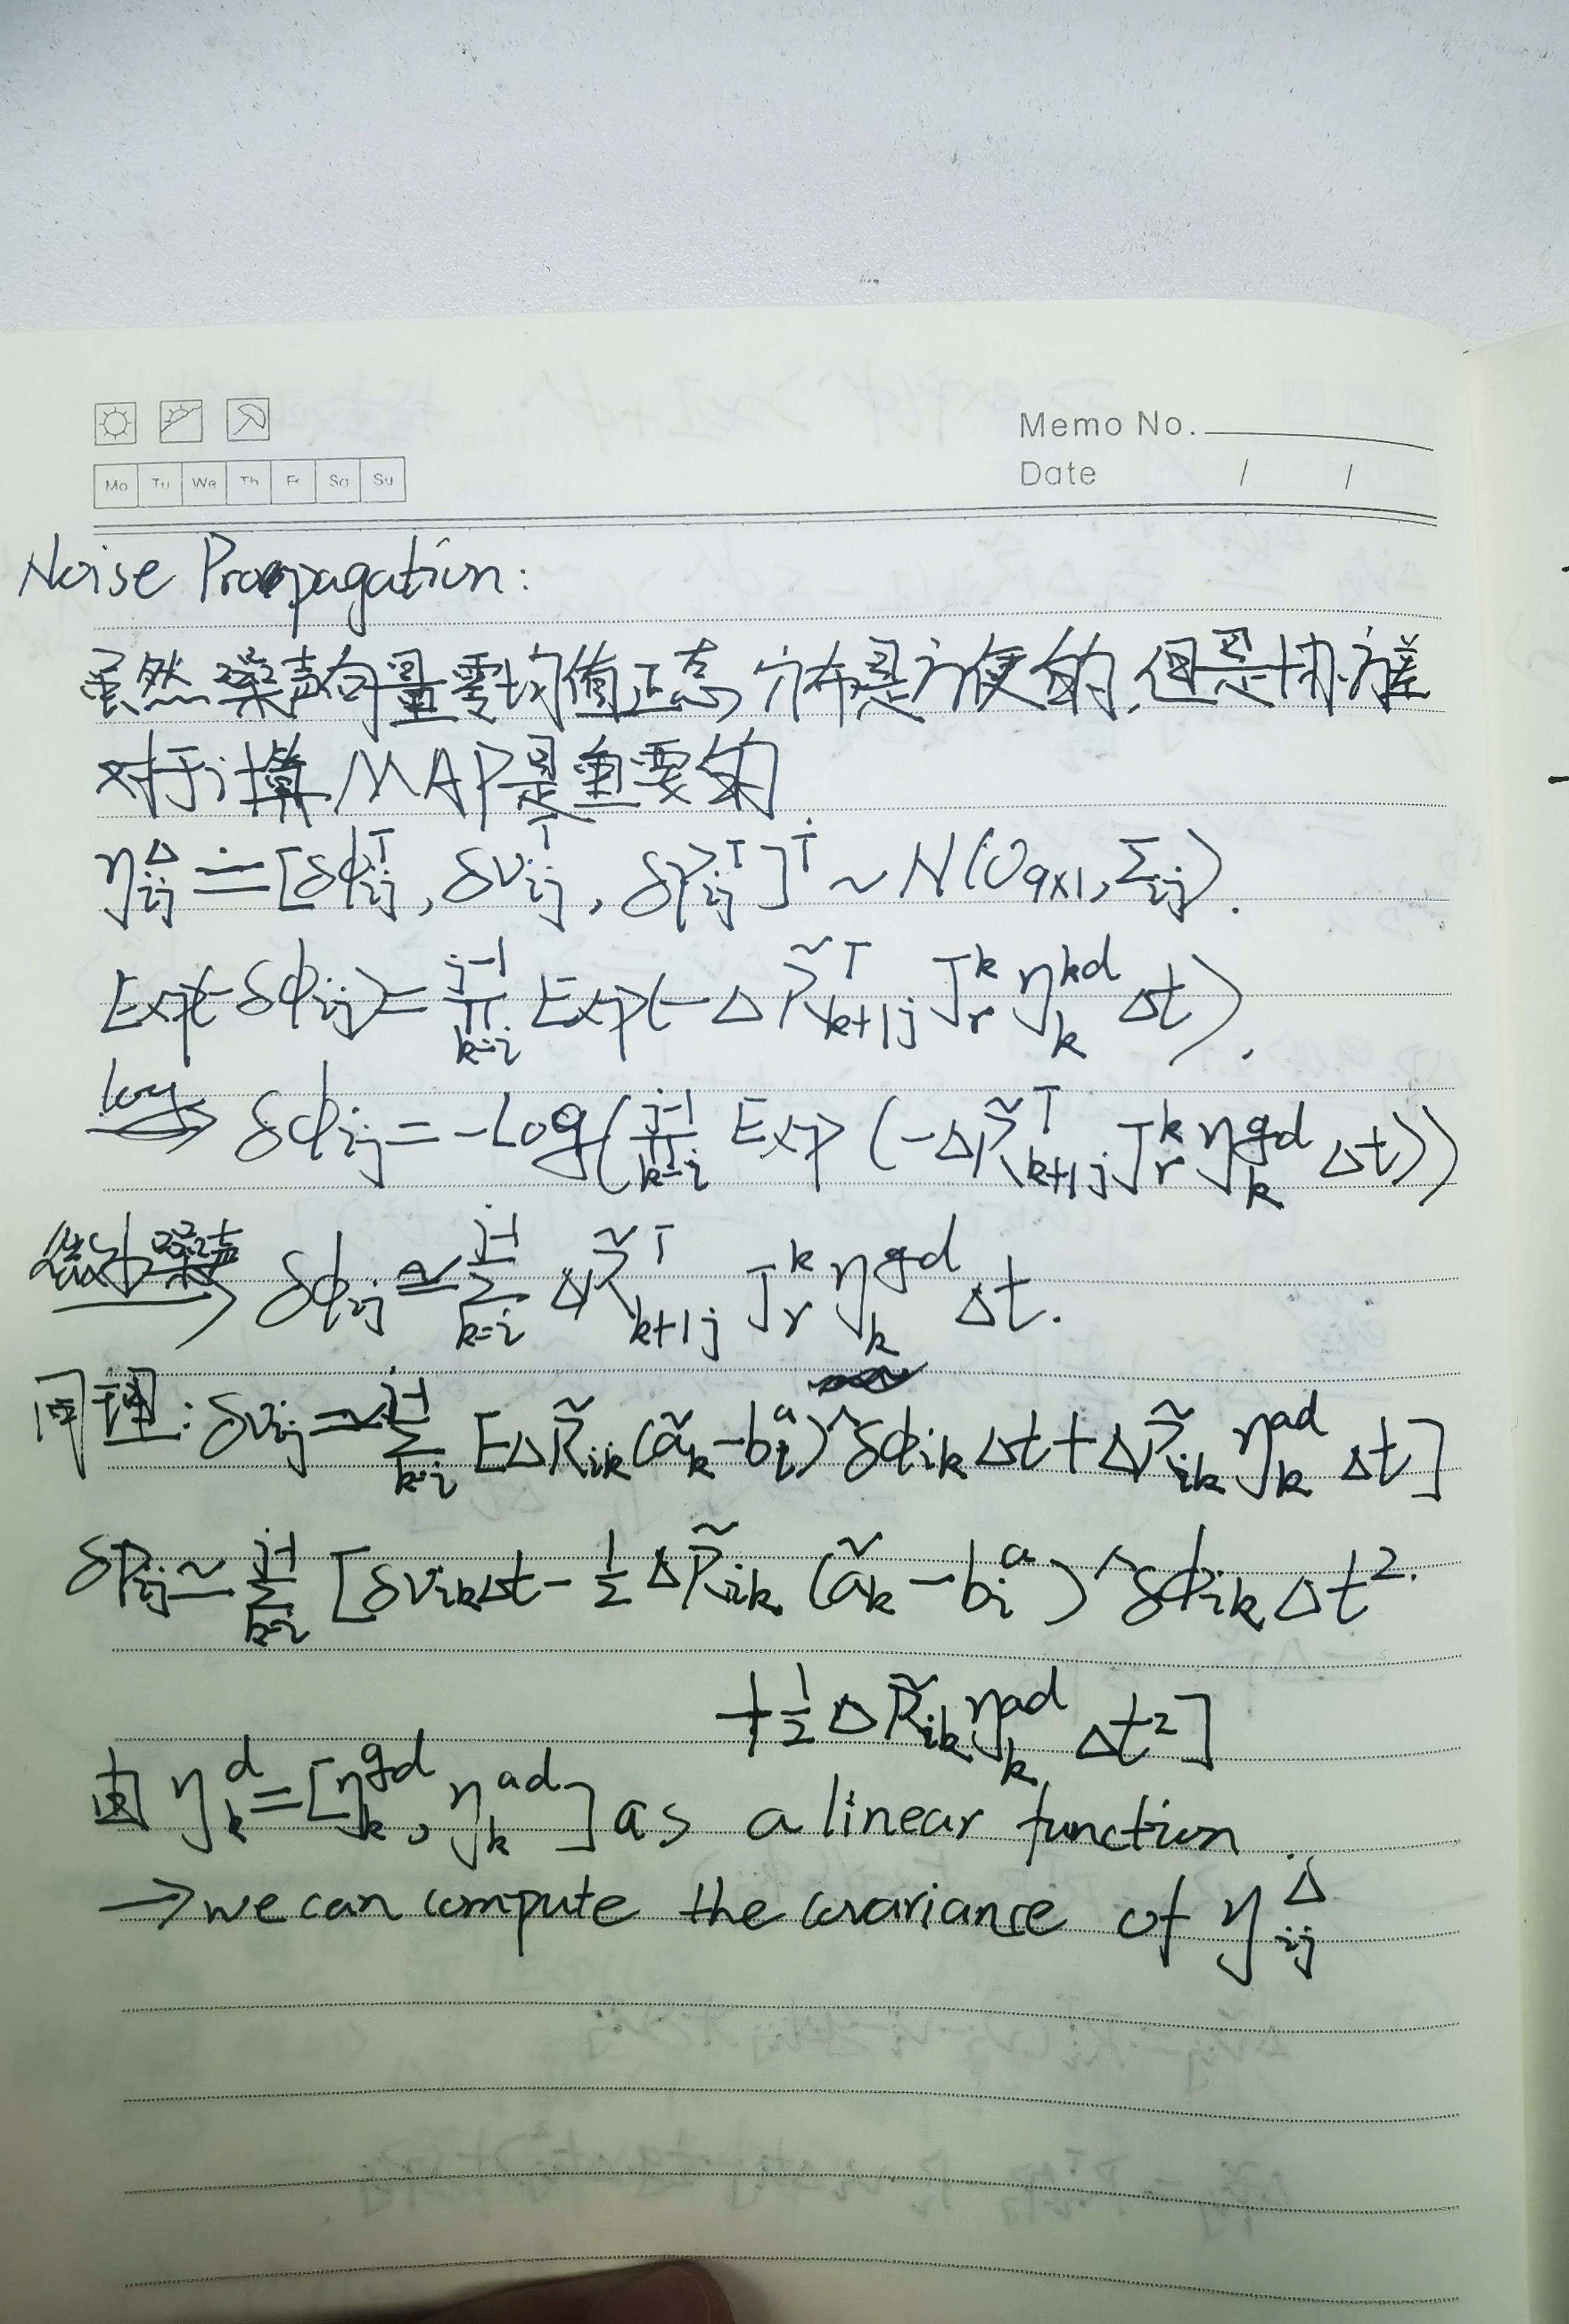 Memo No.
Mo Tu We Th Fr Sa Su
Date / /
Noise Propagation:
虽然噪声向量零均值正态分布是方便的,但是协方差
对于计算MAP是重要的
η_{ij}^Δ ≐ [δφ_{ij}^T, δv_{ij}^T, δp_{ij}^T]^T ~ N(0_{9×1}, Σ_{ij}).
Exp(-δφ_{ij}) = ∏_{k=i}^{j-1} Exp(-ΔR̃_{k+1j}^T J_r^k η_k^{kd} Δt).
log→ δφ_{ij} = -Log(∏_{k=i}^{j-1} Exp(-ΔR̃_{k+1j}^T J_r^k η_k^{gd} Δt))
噪声→ δφ_{ij} ≃ Σ_{k=i}^{j-1} ΔR̃_{k+1j}^T J_r^k η_k^{gd} Δt.
同理: δv_{ij} ≃ Σ_{k=i}^{j-1} [-ΔR̃_{ik}(ã_k-b_i^a)^∧ δφ_{ik} Δt + ΔR̃_{ik} η_k^{ad} Δt]
δp_{ij} ≃ Σ_{k=i}^{j-1} [δv_{ik}Δt - ½ ΔR̃_{ik} (ã_k - b_i^a)^∧ δφ_{ik} Δt².
+½ ΔR̃_{ik} η_k^{ad} Δt²]
由 η_k^d = [η_k^{gd}, η_k^{ad}] as a linear function
→ we can compute the covariance of η_{ij}^Δ